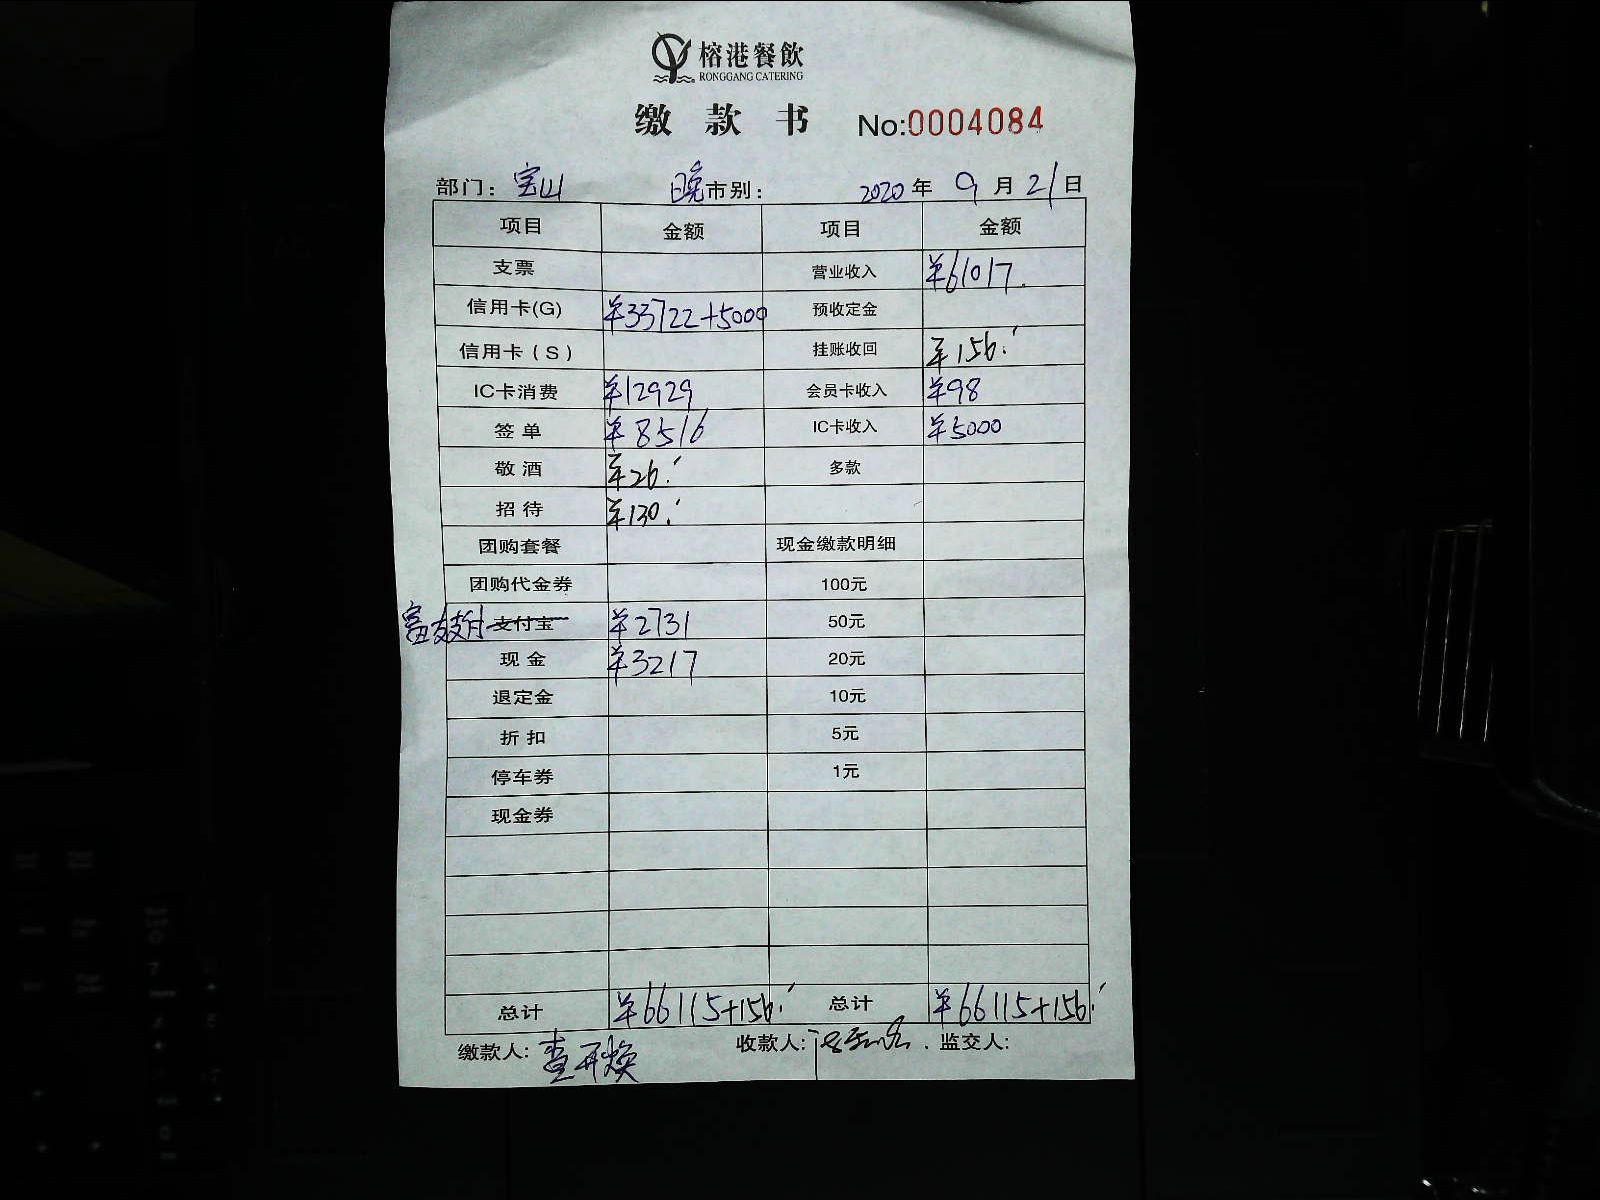 榕港餐飲
RONGGANG CATERING
缴款书 No:0004084
部门：宝山 晚市别： 2020年9月21日
项目 金额 项目 金额
支票 营业收入 ¥61017.
信用卡(G) ¥33722+5000 预收定金
信用卡（S） 挂账收回 ¥156.
IC卡消费 ¥12929 会员卡收入 ¥98
签单 ¥8516 IC卡收入 ¥5000
敬酒 ¥26. 多款
招待 ¥130.
团购套餐 现金缴款明细
团购代金券 100元
富友支付 支付宝 ¥2731 50元
现金 ¥3217 20元
退定金 10元
折扣 5元
停车券 1元
现金券
总计 ¥66115+156. 总计 ¥66115+156.
缴款人：查开焕 收款人： 监交人：